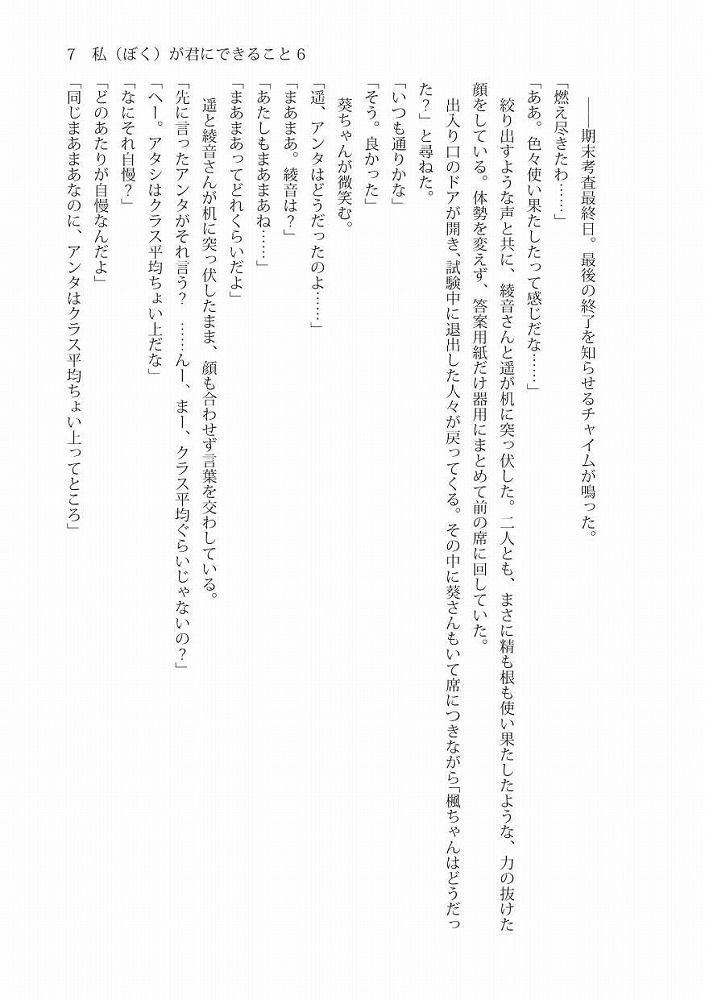 7　私（ぼく）が君にできること6
――期末考査最終日。最後の終了を知らせるチャイムが鳴った。
「燃え尽きたわ……」
「ああ。色々使い果たしたって感じだな……」
絞り出すような声と共に、綾音さんと遥が机に突っ伏した。二人とも、まさに精も根も使い果たしたような、力の抜けた
顔をしている。体勢を変えず、答案用紙だけ器用にまとめて前の席に回していた。
出入り口のドアが開き、試験中に退出した人々が戻ってくる。その中に葵さんもいて席につきながら「楓ちゃんはどうだっ
た？」と尋ねた。
「いつも通りかな」
「そう。良かった」
葵ちゃんが微笑む。
「遥、アンタはどうだったのよ……」
「まあまあ。綾音は？」
「あたしもまあまあね……」
「まあまあってどれくらいだよ」
遥と綾音さんが机に突っ伏したまま、顔も合わせず言葉を交わしている。
「先に言ったアンタがそれ言う？　……んー、まー、クラス平均ぐらいじゃないの？」
「へー。アタシはクラス平均ちょい上だな」
「なにそれ自慢？」
「どのあたりが自慢なんだよ」
「同じまあまあなのに、アンタはクラス平均ちょい上ってところ」